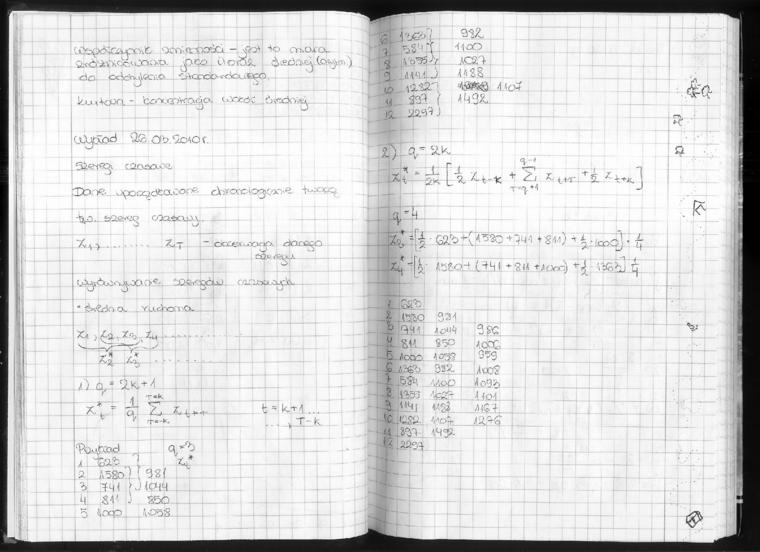 współczynnik zmienności – jest to miara
zróżnicowania jako iloraz średniej (arytm.)
do odchylenia standardowego
kurtoza – koncentracja wokół średniej
Wykład 26.05.2010r.
Szeregi czasowe
Dane uporządkowane chronologicznie tworzą
tzw. szereg czasowy.
Z₁, ........ Z_T – obserwacja danego
szeregu
wyrównywanie szeregów czasowych
• średnia ruchoma
Z₁, Z₂, Z₃, Z₄ ...............
Z₂* Z₃* ...........
1) q = 2k+1
Z_t* = 1/q ∑_{τ=-k}^{τ=k} Z_{t+τ} t = k+1 ...
..., T-k
Przykład q=3
1 623 Z_t*
2 1580 981
3 741 1044
4 811 850
5 1000 1058
6 1363 982
7 584 1100
8 1353 1027
9 1141 1188
10 1282 1107
11 897 1492
12 2297
2) q = 2k
Z_t* = 1/2k [1/2 Z_{t-k} + ∑ Z_{t+τ} + 1/2 Z_{t+k}]
q=4
Z₃* = [1/2 · 623 + (1580 + 741 + 811) + 1/2 · 1000] · 1/4
Z₄* = [1/2 · 1580 + (741 + 811 + 1000) + 1/2 · 1363] 1/4
1 623
2 1580 981
3 741 1044 986
4 811 850 1006
5 1000 1058 959
6 1363 982 1008
7 584 1100 1093
8 1353 1027 1101
9 1141 1188 1167
10 1282 1107 1276
11 897 1492
12 2297